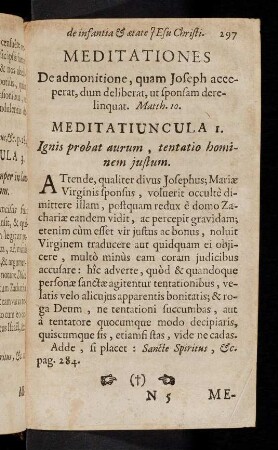 de infantia & ætate JEsu Christi. 297
MEDITATIONES
De admonitione, quam Joseph acce-
perat, dum deliberat, ut sponsam dere-
linquat. Matth. 10.
MEDITATIUNCULA I.
Ignis probat aurum, tentatio homi-
nem justum.
ATtende, qualiter divus Josephus; Mariæ
Virginis sponsus, voluerit occultè di-
mittere illam, postquam redux è domo Za-
chariæ eandem vidit, ac percepit gravidam;
etenim cùm esset vir justus ac bonus, noluit
Virginem traducere aut quidquam ei obji-
cere, multò minùs eam coram judicibus
accusare: hîc adverte, quòd & quandoque
personæ sanctæ agitentur tentationibus, ve-
latis velo alicujus apparentis bonitatis; & ro-
ga Deum, ne tentationi succumbas, aut
à tentatore quocumque modo decipiaris,
quiscumque sis, etiamsi stas, vide ne cadas.
Adde, si placet: Sancte Spiritus, &c.
pag. 284.
(†)
N 5 ME-